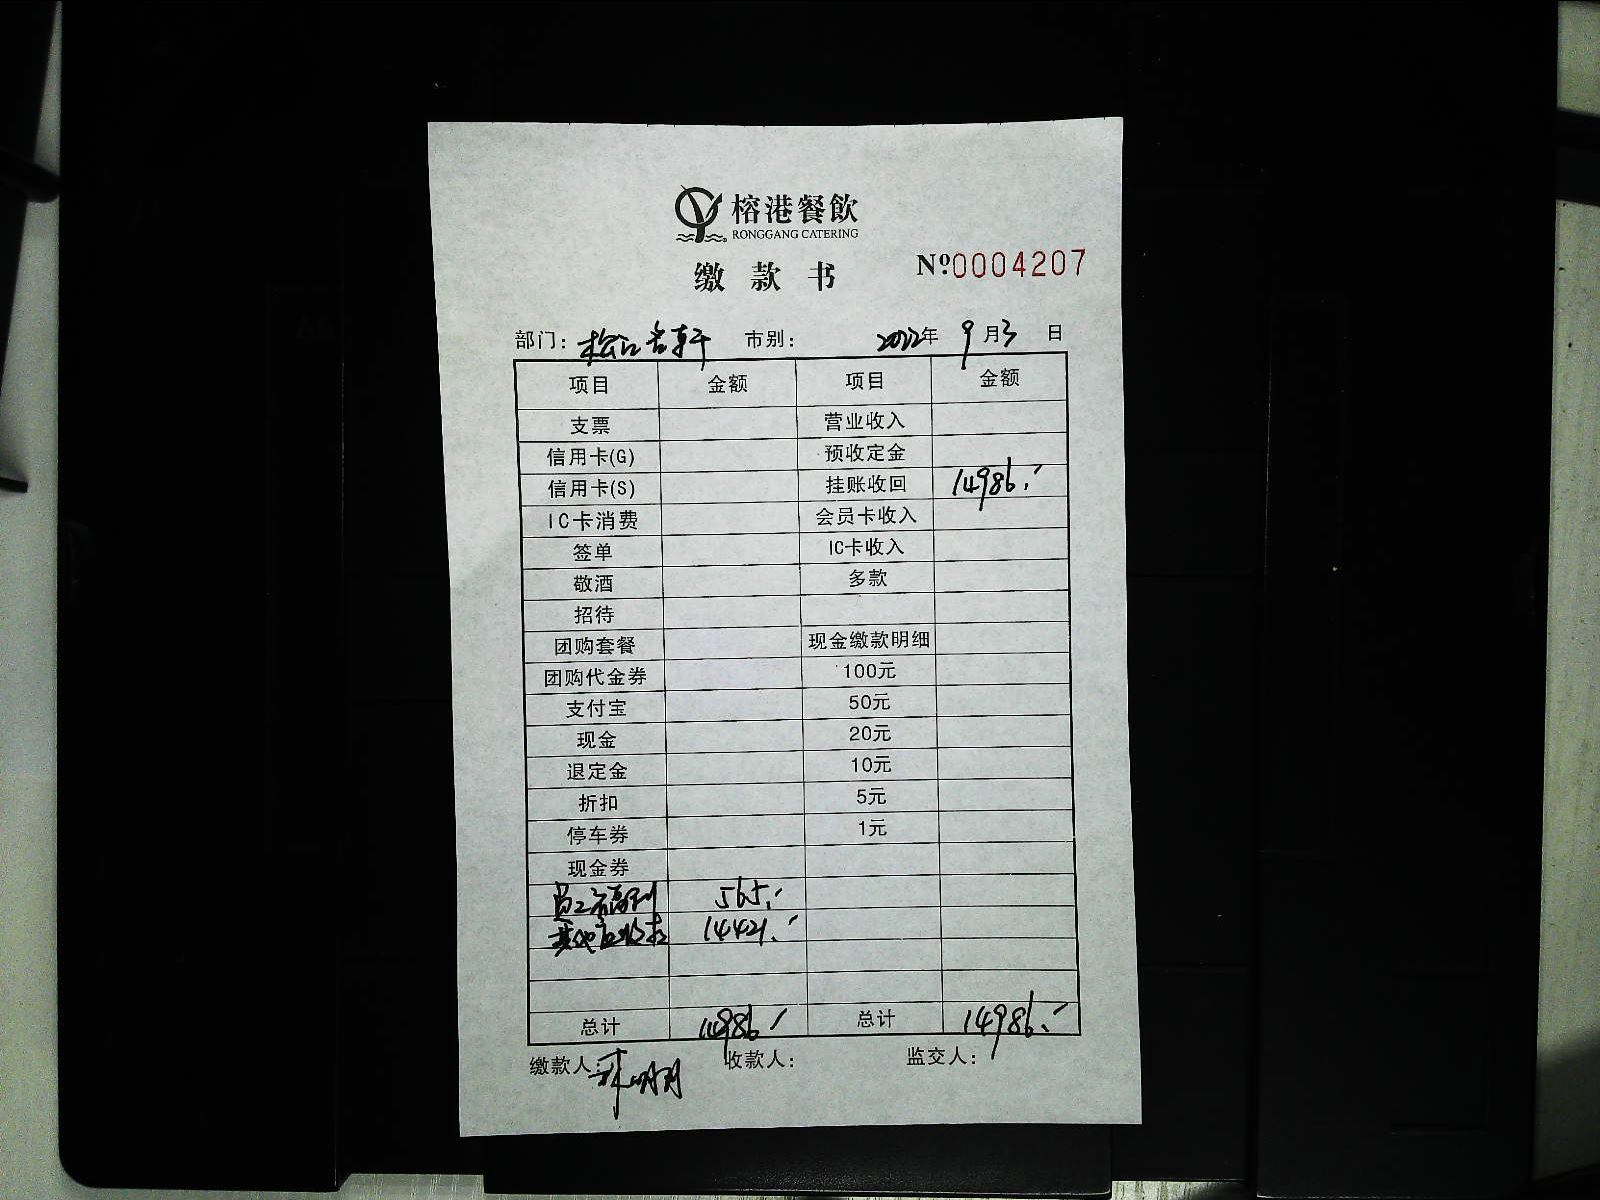 榕港餐飲
RONGGANG CATERING
缴款书 Nº0004207
部门: 松江名轩 市别: 2022年 9月3日
项目 金额 项目 金额
支票 营业收入
信用卡(G) 预收定金
信用卡(S) 挂账收回 14986.-
IC卡消费 会员卡收入
签单 IC卡收入
敬酒 多款
招待
团购套餐 现金缴款明细
团购代金券 100元
支付宝 50元
现金 20元
退定金 10元
折扣 5元
停车券 1元
现金券
员工福利 565.-
其他应收款 14421.-
总计 14986.- 总计 14986.-
缴款人: 明月 收款人: 监交人: